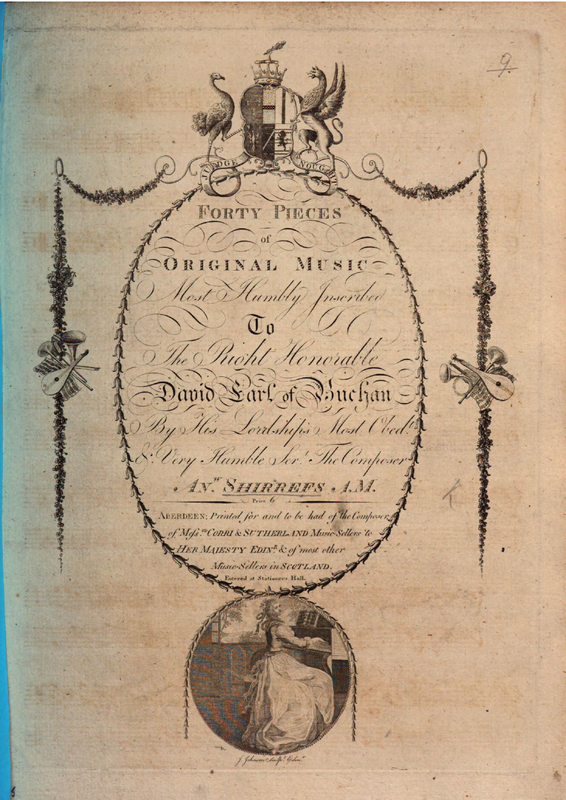 9.
JUDGE NOUGHT
FORTY PIECES
of
ORIGINAL MUSIC
Most Humbly Inscribed
To
The Right Honorable
David Earl of Buchan
By His Lordship's Most Obedt.
& Very Humble Sert. The Composer
AN.W SHIRREFS A.M.
Price 6
ABERDEEN: Printed for and to be had of the Composer,
of Messrs. CORRI & SUTHERLAND Music-Sellers to
HER MAJESTY EDINR. & of most other
Music-Sellers in SCOTLAND.
Entered at Stationers Hall.
J. Johnson Sculpt. Edinr.